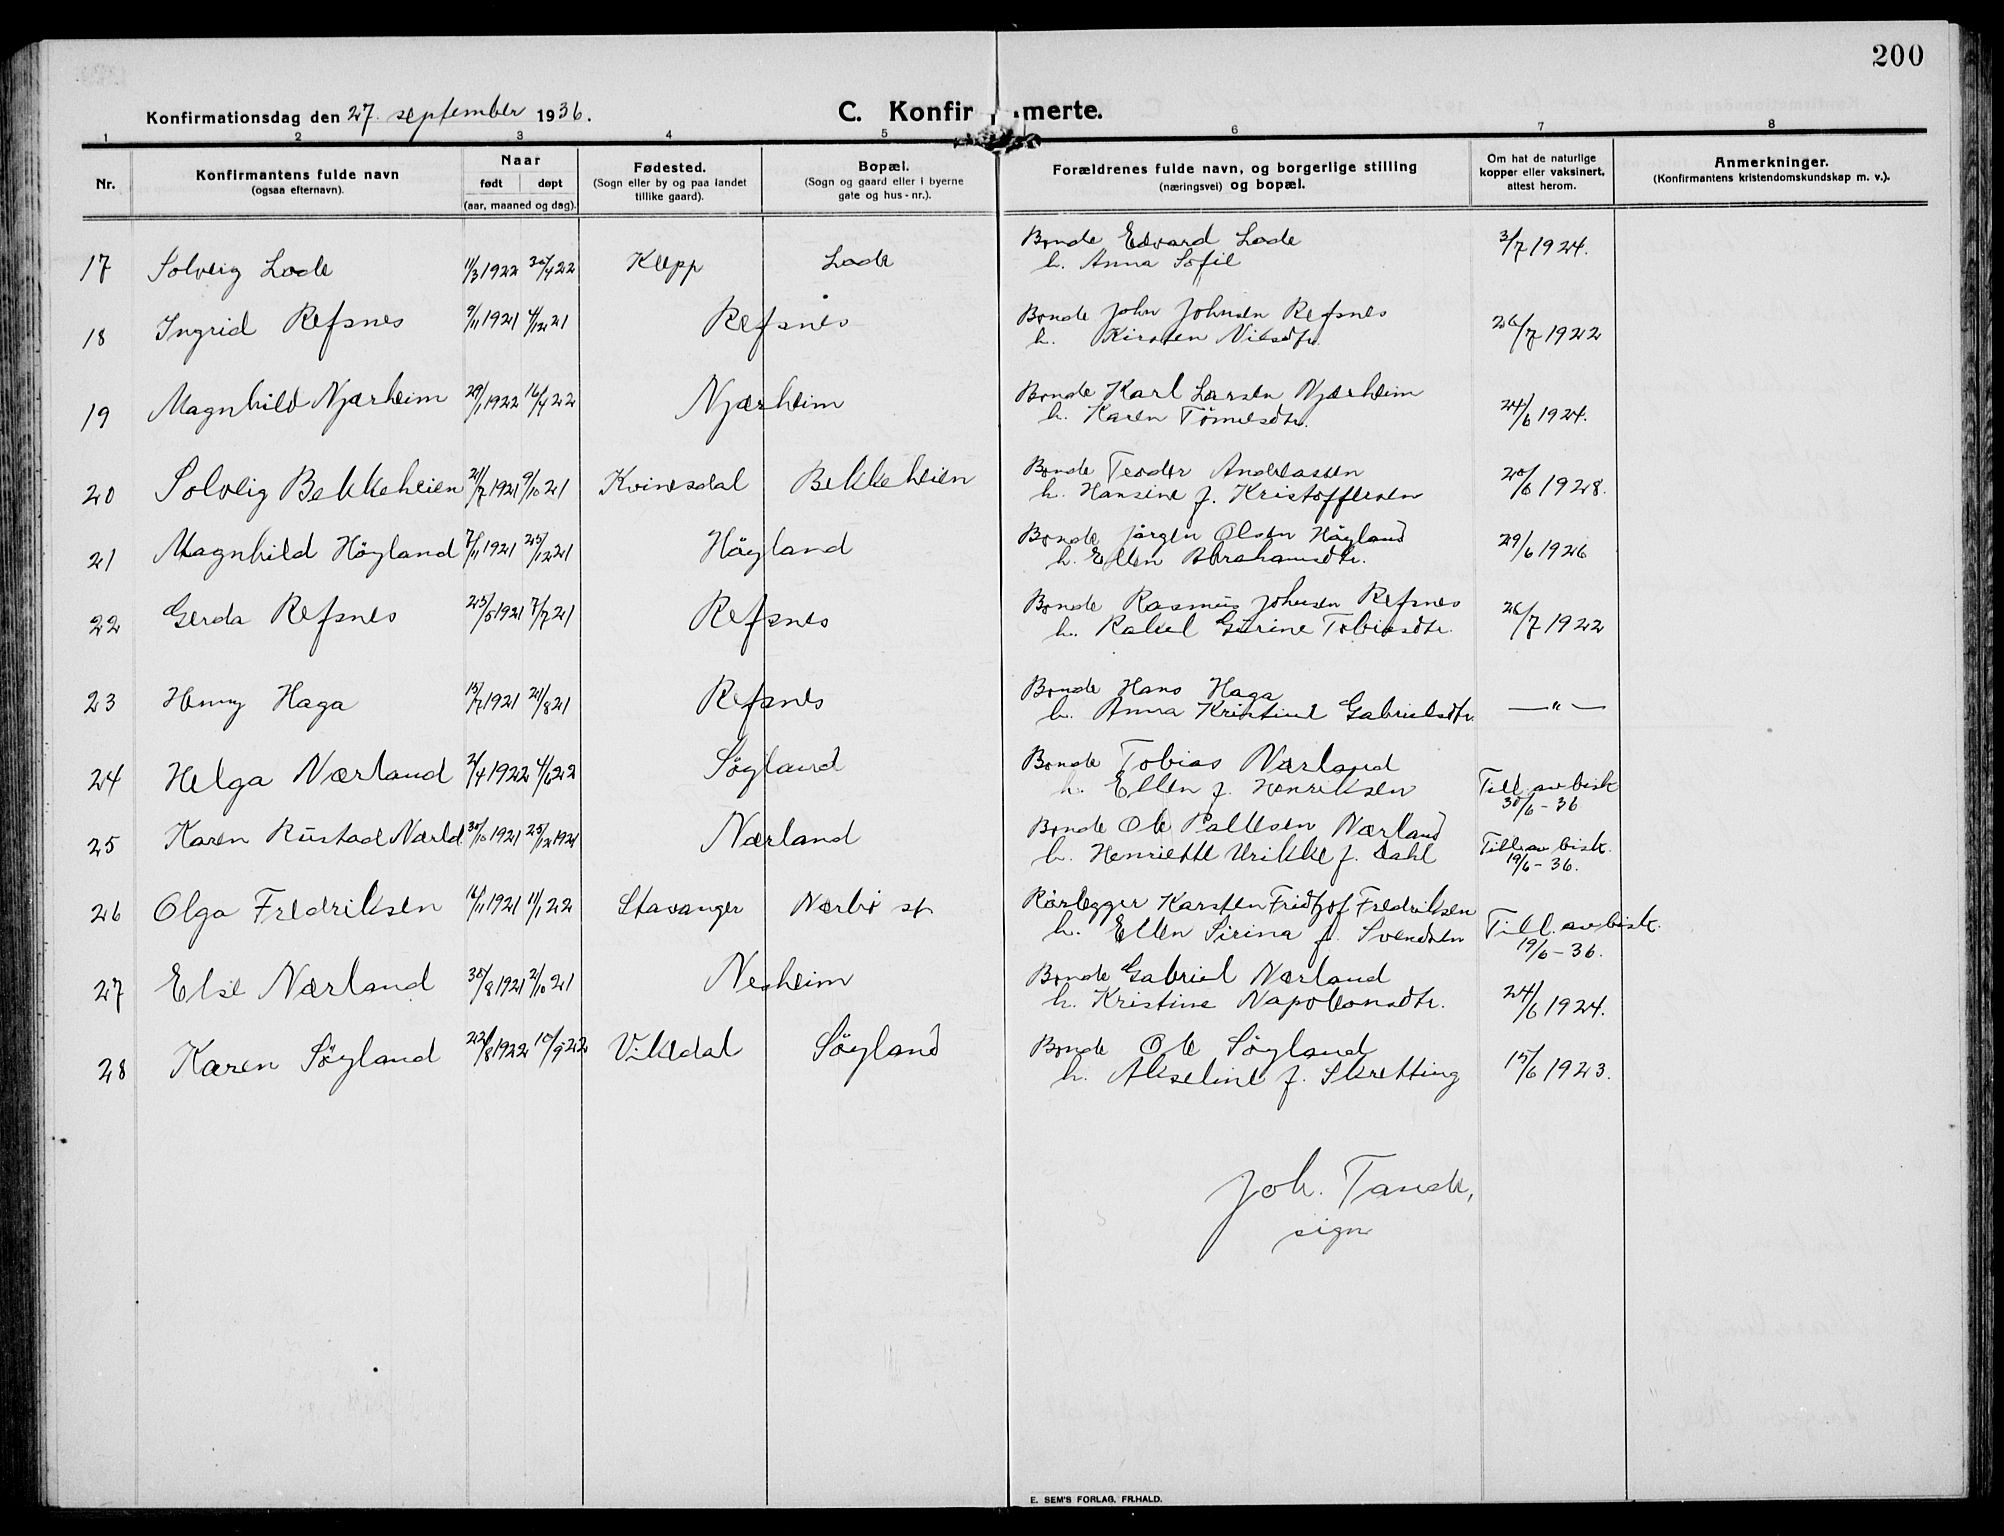 200
Konfirmationsdag den 27. september 1936.
C. Konfir merte.
1 2 3 4 5 6 7 8
Nr.
Konfirmantens fulde navn
(ogsaa efternavn).
Naar
født døpt
(aar, maaned og dag).
Fødested.
(Sogn eller by og paa landet
tillike gaard).
Bopæl.
(Sogn og gaard eller i byerne
gate og hus-nr.).
Forældrenes fulde navn, og borgerlige stilling
(næringsvei) og bopæl.
Om hat de naturlige
kopper eller vaksinert,
attest herom.
Anmerkninger.
(Konfirmantens kristendomskundskap m. v.).
17 Solveig Lode 11/3 1922 30/4 22 Klepp Lode Bonde Edvard Lode 3/7 1924.
h. Anna Sofie
18 Ingrid Refsnes 9/11 1921 4/12 21 Refsnes Bonde John Johnsen Refsnes 26/7 1922
h. Kirsten Nilsdtr.
19 Magnhild Njærheim 29/1 1922 16/4 22 Njærheim Bonde Karl Larsen Njærheim 24/6 1924.
h. Karen Tønnesdtr.
20 Solveig Bekkeheien 21/7 1921 9/10 21 Kvinesdal Bekkeheien Bonde Teodor Andreassen 20/6 1928.
h. Hansine f. Kristoffersen
21 Magnhild Höyland 7/11 1921 25/12 21 Höyland Bonde Jörgen Olsen Höyland 29/6 1926
h. Ellen Abrahamsdtr.
22 Gerda Refsnes 25/5 1921 7/7 21 Refsnes Bonde Rasmus Johnsen Refsnes 26/7 1922
h. Rakel Gurine Tobiasdtr.
23 Henny Haga 15/7 1921 21/8 21 Refsnes Bonde Hans Haga — " —
h. Anna Kristine Gabrielsdtr.
24 Helga Nærland 2/4 1922 4/6 22 Söyland Bonde Tobias Nærland
h. Ellen f. Henriksen Till. av bisk
30/6 - 36
25 Karen Rustad Nærld 30/10 1921 25/12 1921 Nærland Bonde Ole Pallesen Nærland Till. av bisk.
h. Henriette Urikke f. Dahl 19/6 - 36.
26 Olga Fredriksen 16/11 1921 11/1 22 Stavanger Nærbö st. Rörlegger Karsten Fridtjof Fredriksen
h. Ellen Sirina f. Svendsen Till. av bisk.
19/6 - 36.
27 Else Nærland 30/8 1921 2/10 21 Nesheim Bonde Gabriel Nærland 24/6 1924.
h. Kristine Napoleonsdtr.
28 Karen Söyland 22/8 1922 10/9 22 Vikedal Söyland Bonde Ole Söyland 15/6 1923.
h. Akseline f. Skretting
Joh. Tande,
sign
E. SEM'S FORLAG, FR.HALD.